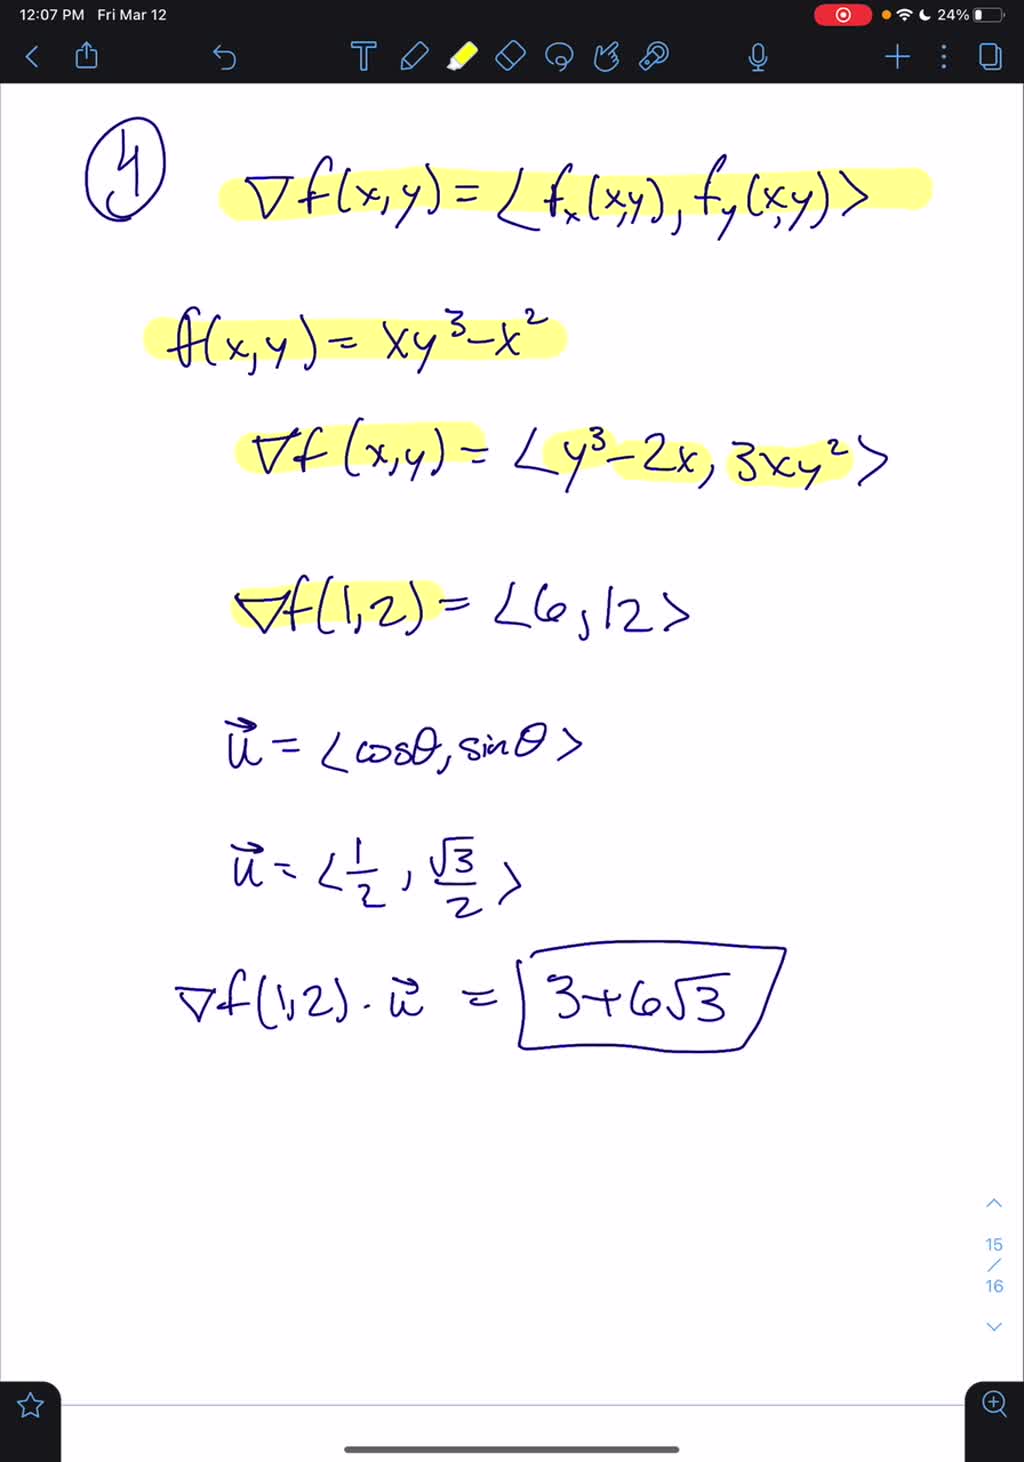 12:07 PM Fri Mar 12 24%
4
∇f(x,y) = <fₓ(x,y), f_y(x,y)>
f(x,y) = xy³-x²
∇f(x,y) = <y³-2x, 3xy²>
∇f(1,2) = <6,12>
u⃗ = <cosθ, sinθ>
u⃗ = <1/2, √3/2>
∇f(1,2) · u⃗ = 3+6√3
15
/
16